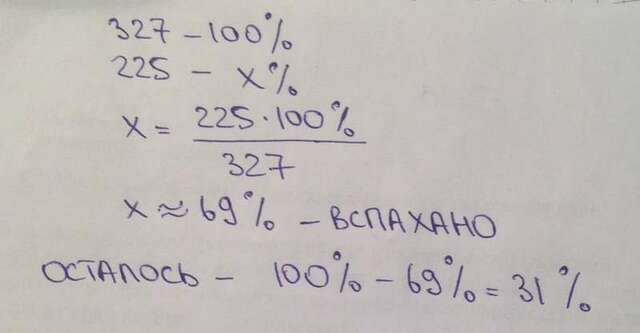 327 – 100%
225 – x%
x = 225·100% / 327
x ≈ 69% – ВСПАХАНО
ОСТАЛОСЬ – 100% – 69% = 31%